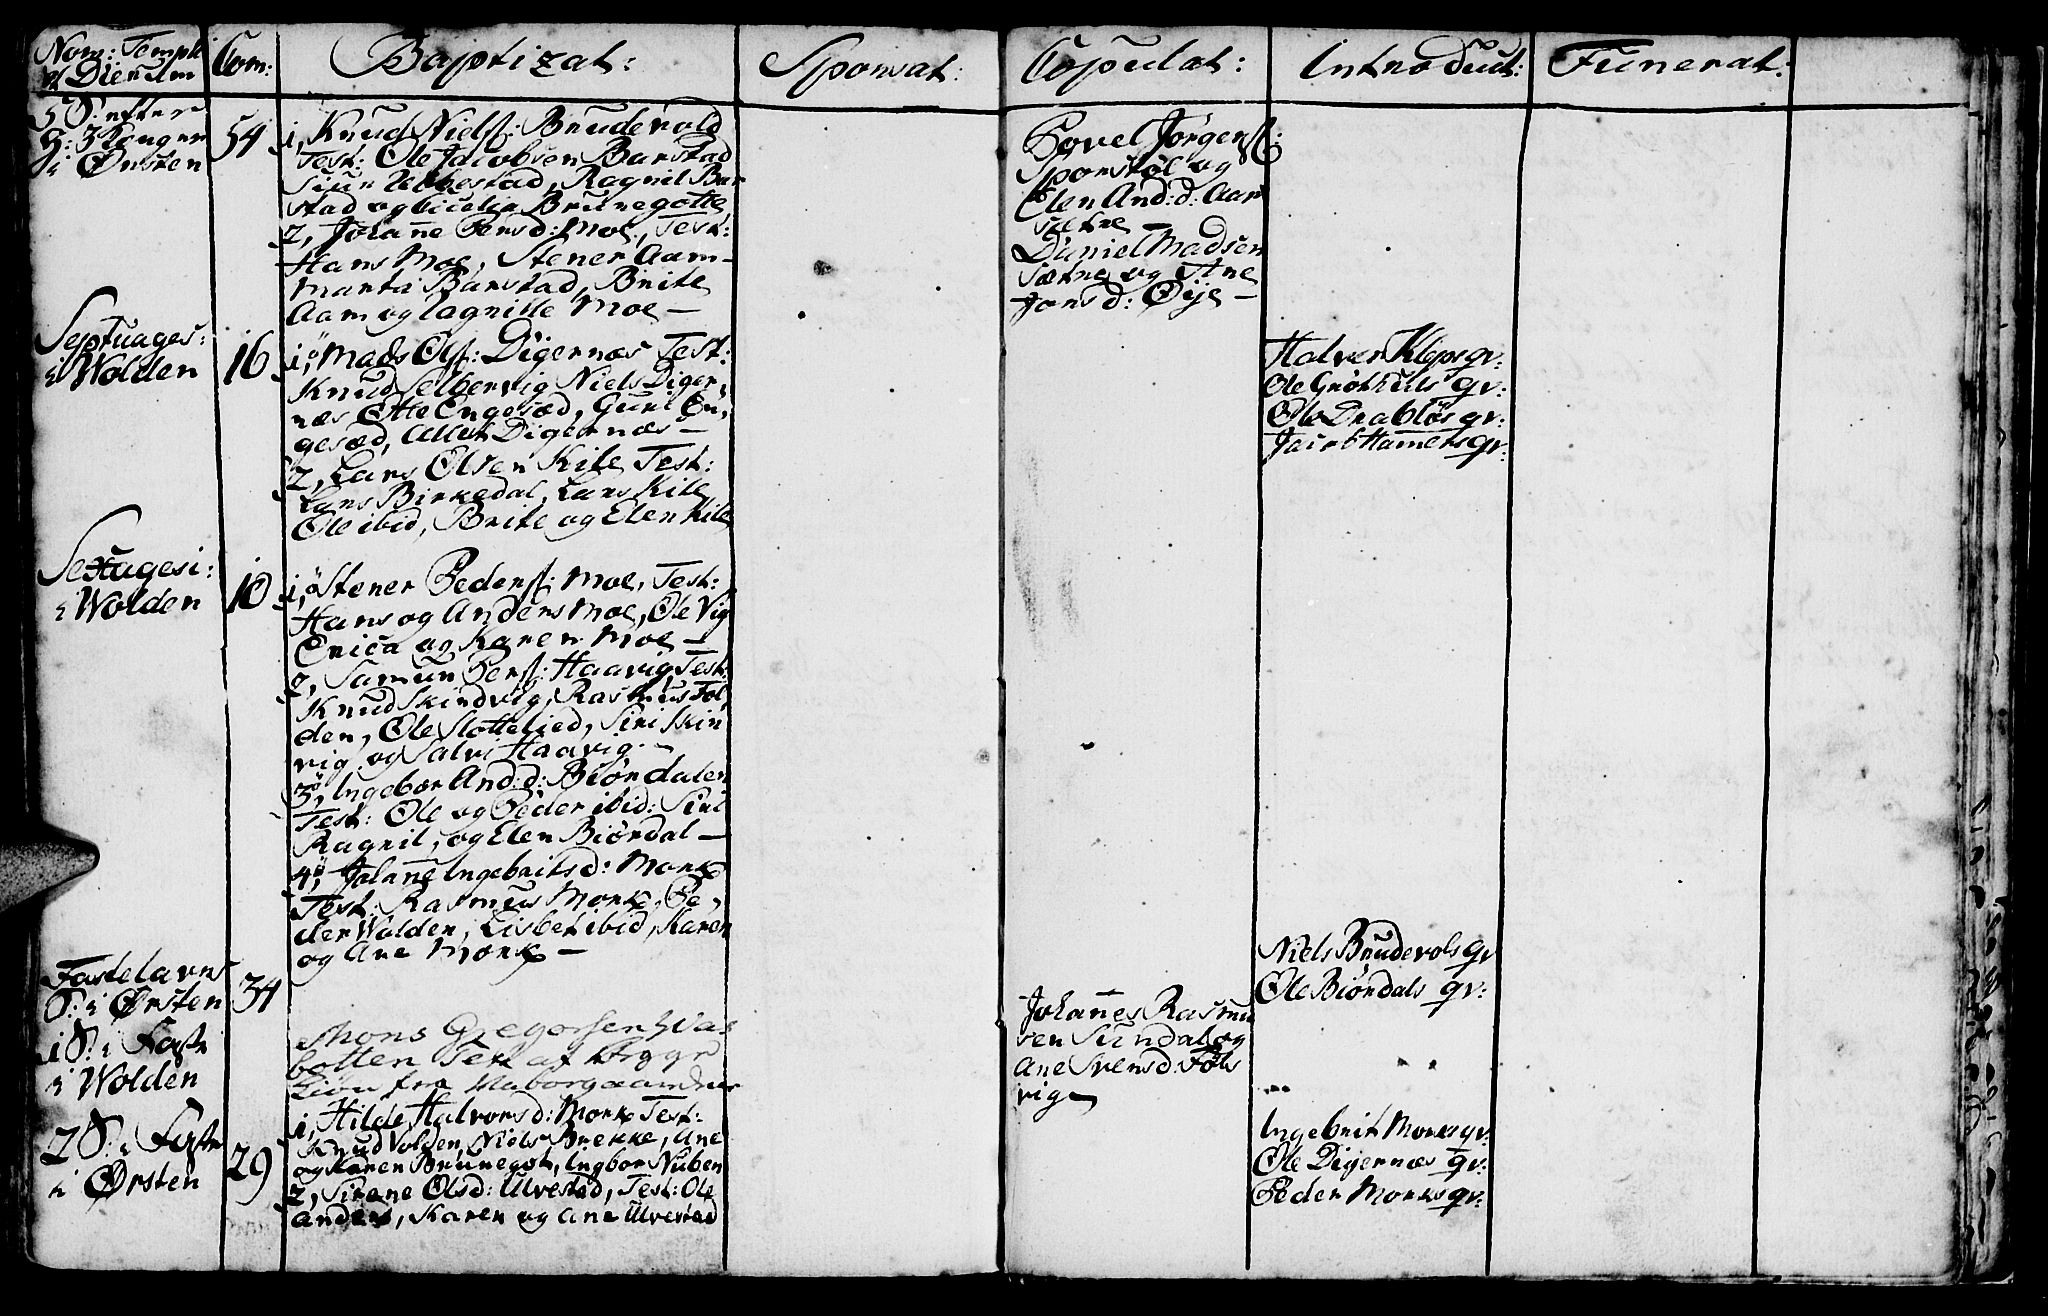 Nom: Templi
et Dierum
Com:
Baptizat:
Sponsat:
Copulat:
Introduct:
Funerat:
5 S: efter
H: 3 Konger
i Ørsten
54
1, Knud Nielss: Brudevold
Test: Ole Jacobsen Barstad
Siur Ubbestad, Ragnil Bar
stad og Brunegotte
2, Johanne Persd: Moe, Test:
Hans Moe, Stener Aam
Marta Barstad, Brite
Aam og Moe
Povel Jørgens:
Sporstøl og
Elen And: d: Aar
sætre
Daniel Madsen
Sætre og Ane
Jons d: Øye
Septuages:
i Wolden
16
1, Mads Ols: Digernæs Test:
Knud Selbervig Niels Diger
næs Otte Engesæd, Guri En
gesæd, Digernæs
2, Lars Olsen Kile Test:
Lars Birkedal, Lars Kile
Ole ibid, Brite og Elen Kile
Halver Kleps gv:
Ole Grøthuls gv:
Ole Drabløs gv:
Jacob Hamers gv:
Sexagesi:
i Wolden
10
1, Stener Peders: Moe, Test:
Hans og Anders Moe, Ole Vig
Erica og Karen Moe
2, Samun Pers: Haavig Test:
Knud Skindvig, Rasmus Fol
den, Ole Slottelied, Siri Skin
vig og Salvi Haavig
3, Ingebor And: d: Biørdalen
Test: Ole og Peder ibid: Siri
Ragnil, og Elen Biørdal
4, Johanne Ingebritsd: Mork
Test: Rasmus Mork, Pe
der Wolden, Lisbet ibid, Karen
og Ane Mork
Fastelavns
S: i Ørsten
34
Niels Brudevols gv
Ole Biørdals gv:
Johannes Rasmu
sen Sundal og
Ane Svensd: Føls
vig
1 S: i Faste
i Wolden
Mons Gregorsen
botten
fra
2 S: i Faste
i Ørsten
29
1, Hilde Halvorsd: Mork Test:
Knud Volden, Niels Brekke, Ane
og Karen Brunegot, Ingbor Nuben
2, Sirene Olsd: Ulvestad, Test: Ole
Anders, Karen og Ane Ulvestad
Ingebrit Morks gv:
Ole Digernæs gv:
Peder Morks gv: